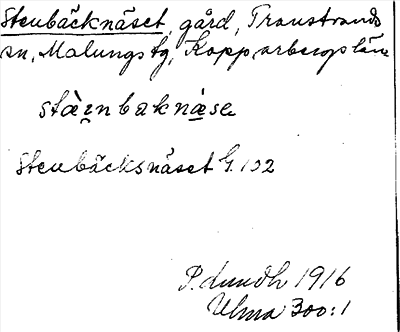 Stenbäcknäset, gård, Transtrands
sn, Malungs tg, Kopparbergs län
stàinbaknàse
Stenbäcksnäset G. 132
P. Lundh 1916
Ulma 300:1